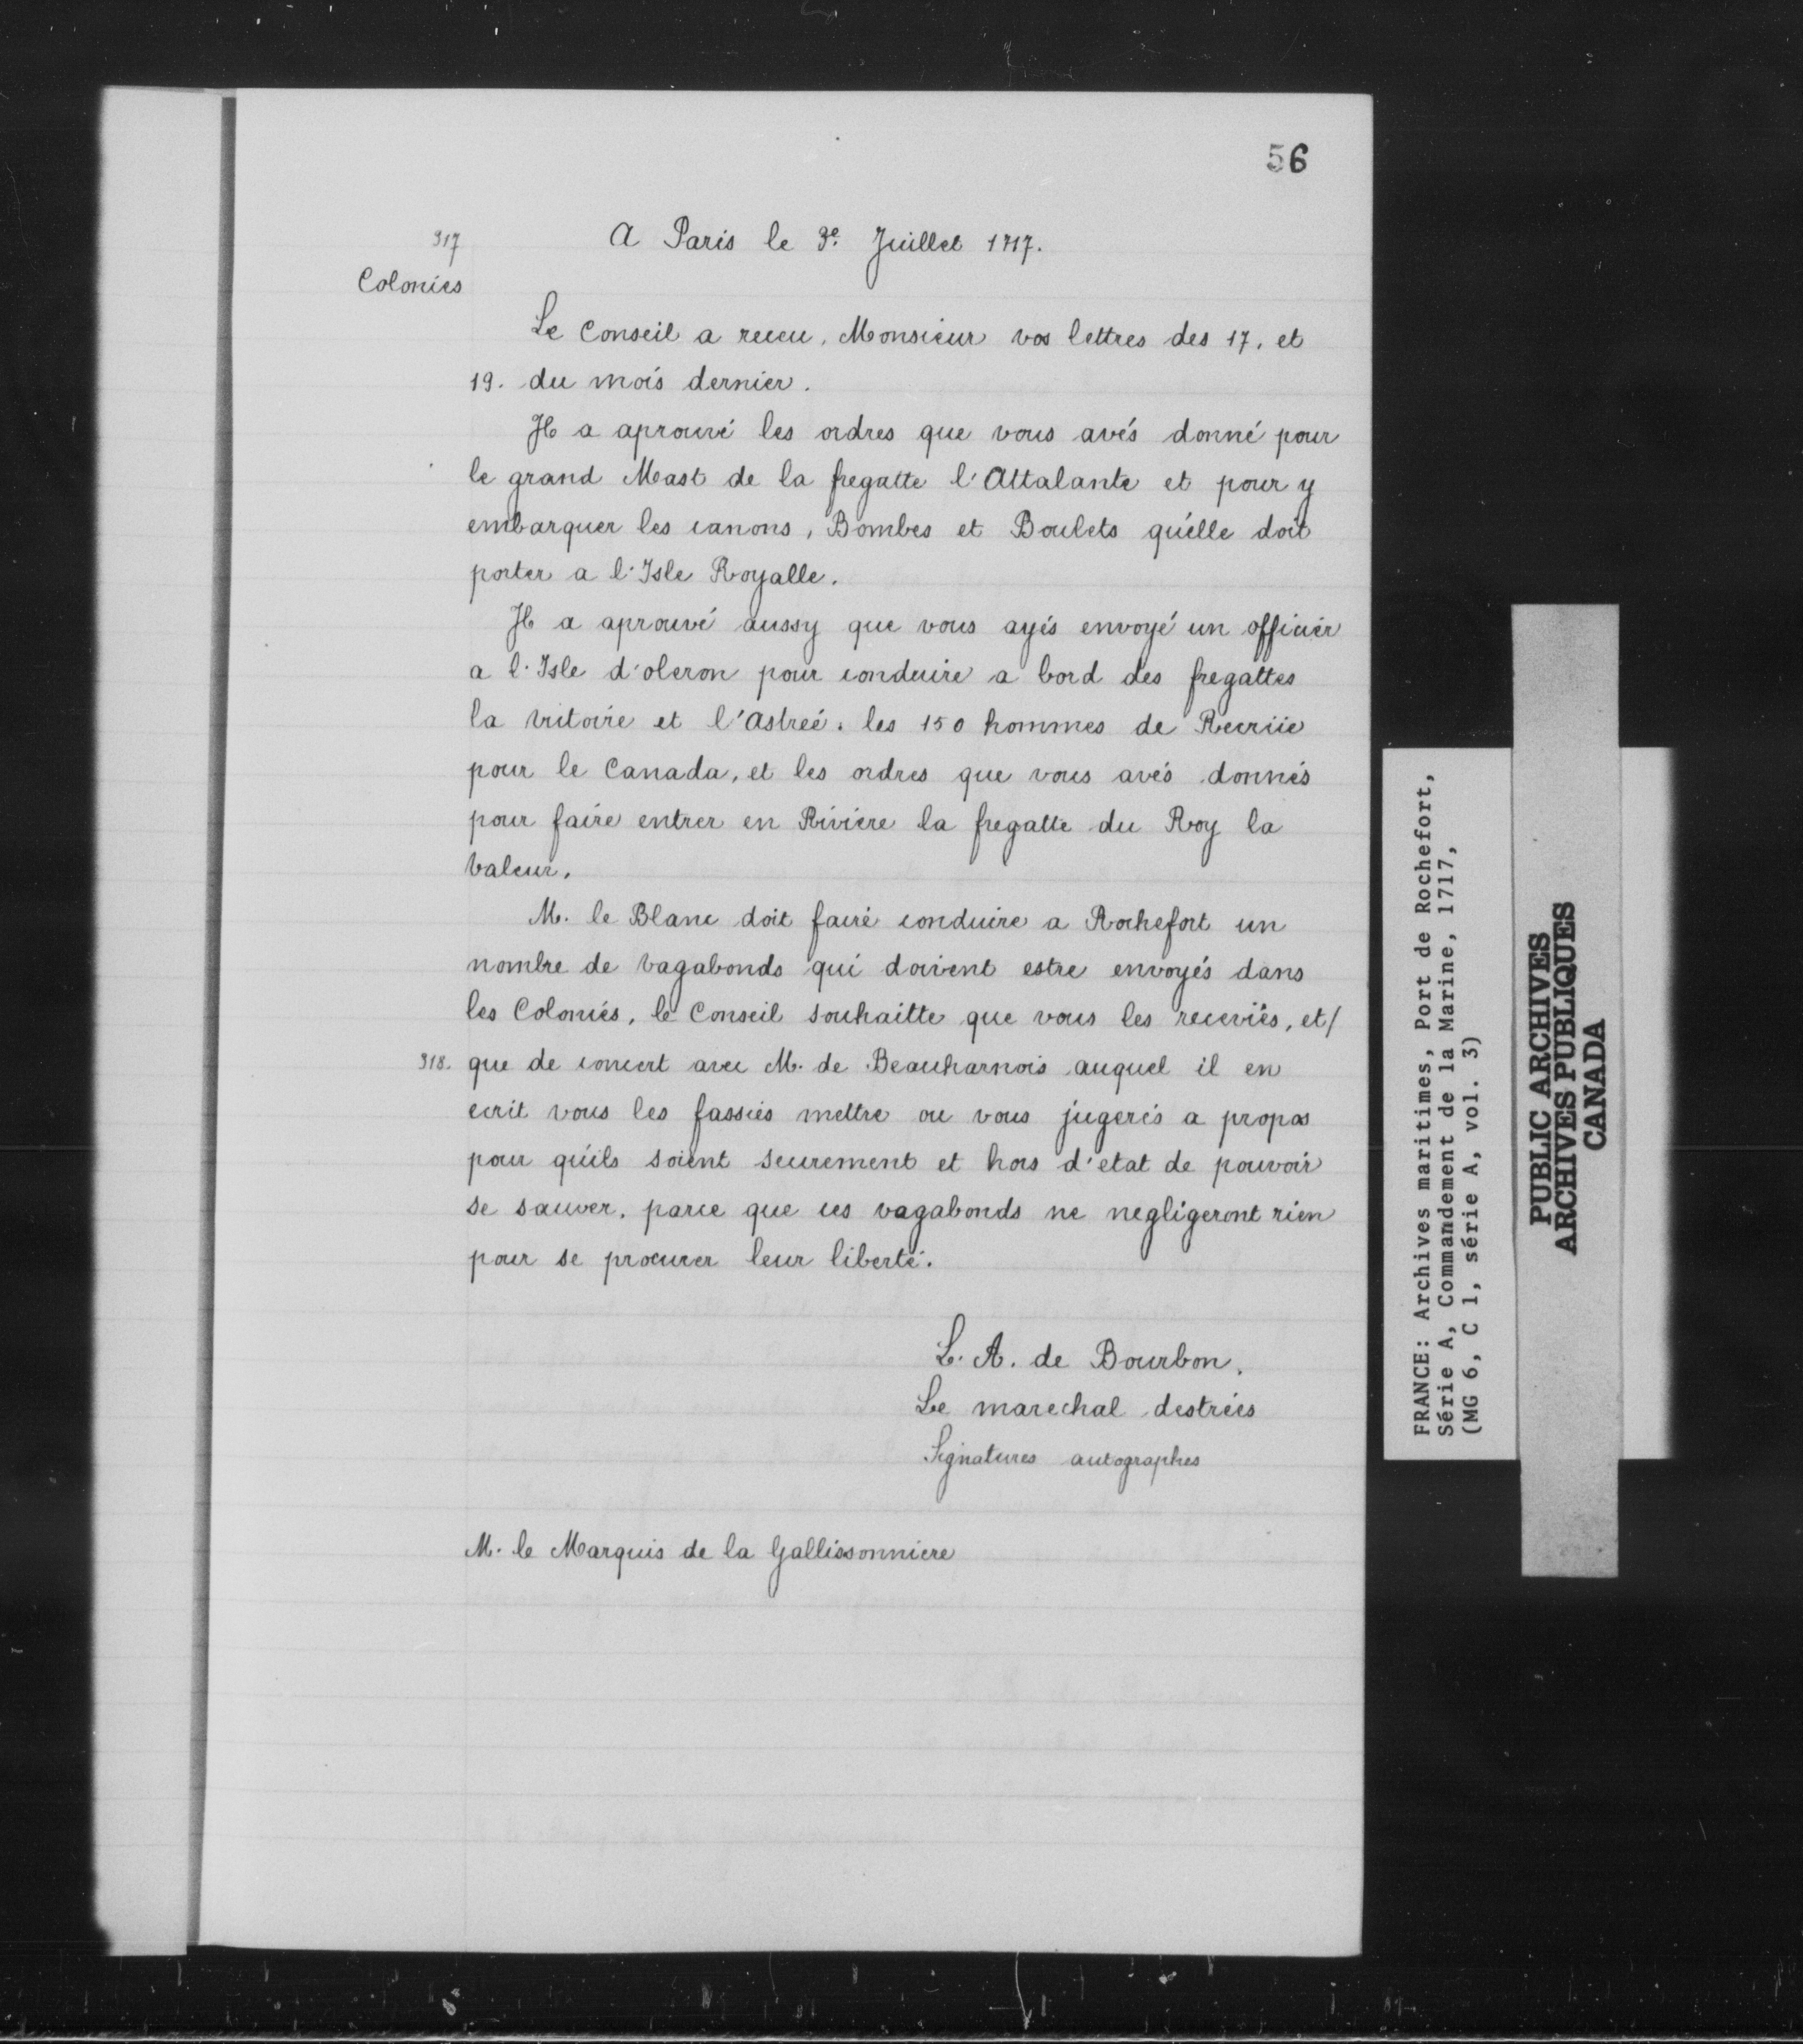 56
317
A Paris le 3e. Juillet 1717.
Colonies
Le Conseil a receu, Monsieur vos lettres des 17. et
19. du mois dernier.
Il a aprouvé les ordres que vous avés donné pour
le grand Mast de la fregatte l'Attalante et pour y
embarquer les canons, Bombes et Boulets qu'elle doit
porter a l'Isle Royalle.
Il a aprouvé aussy que vous ayés envoyé un officier
a l'Isle d'oleron pour conduire a bord des fregattes
la victoire et l'astreé. les 150 hommes de Recrüe
pour le Canada, et les ordres que vous avés donnés
pour faire entrer en Riviere la fregatte du Roy la
Valeur.
M. le Blanc doit faire conduire a Rochefort un
nombre de vagabonds qui doivent estre envoyés dans
les Colonies, le Conseil souhaitte que vous les receviés, et/
318. que de concert avec M. de Beauharnois auquel il en
ecrit vous les fassiés mettre ou vous jugerés a propos
pour qu'ils soient seurement et hors d'etat de pouvoir
se sauver. parce que ces vagabonds ne negligeront rien
pour se procurer leur liberté.
L. A. de Bourbon.
Le marechal destrées
Signatures autographes
M. le Marquis de la Gallissonniere
FRANCE: Archives maritimes, Port de Rochefort,
Série A, Commandement de la Marine, 1717,
(MG 6, C 1, série A, vol. 3)
PUBLIC ARCHIVES
ARCHIVES PUBLIQUES
CANADA